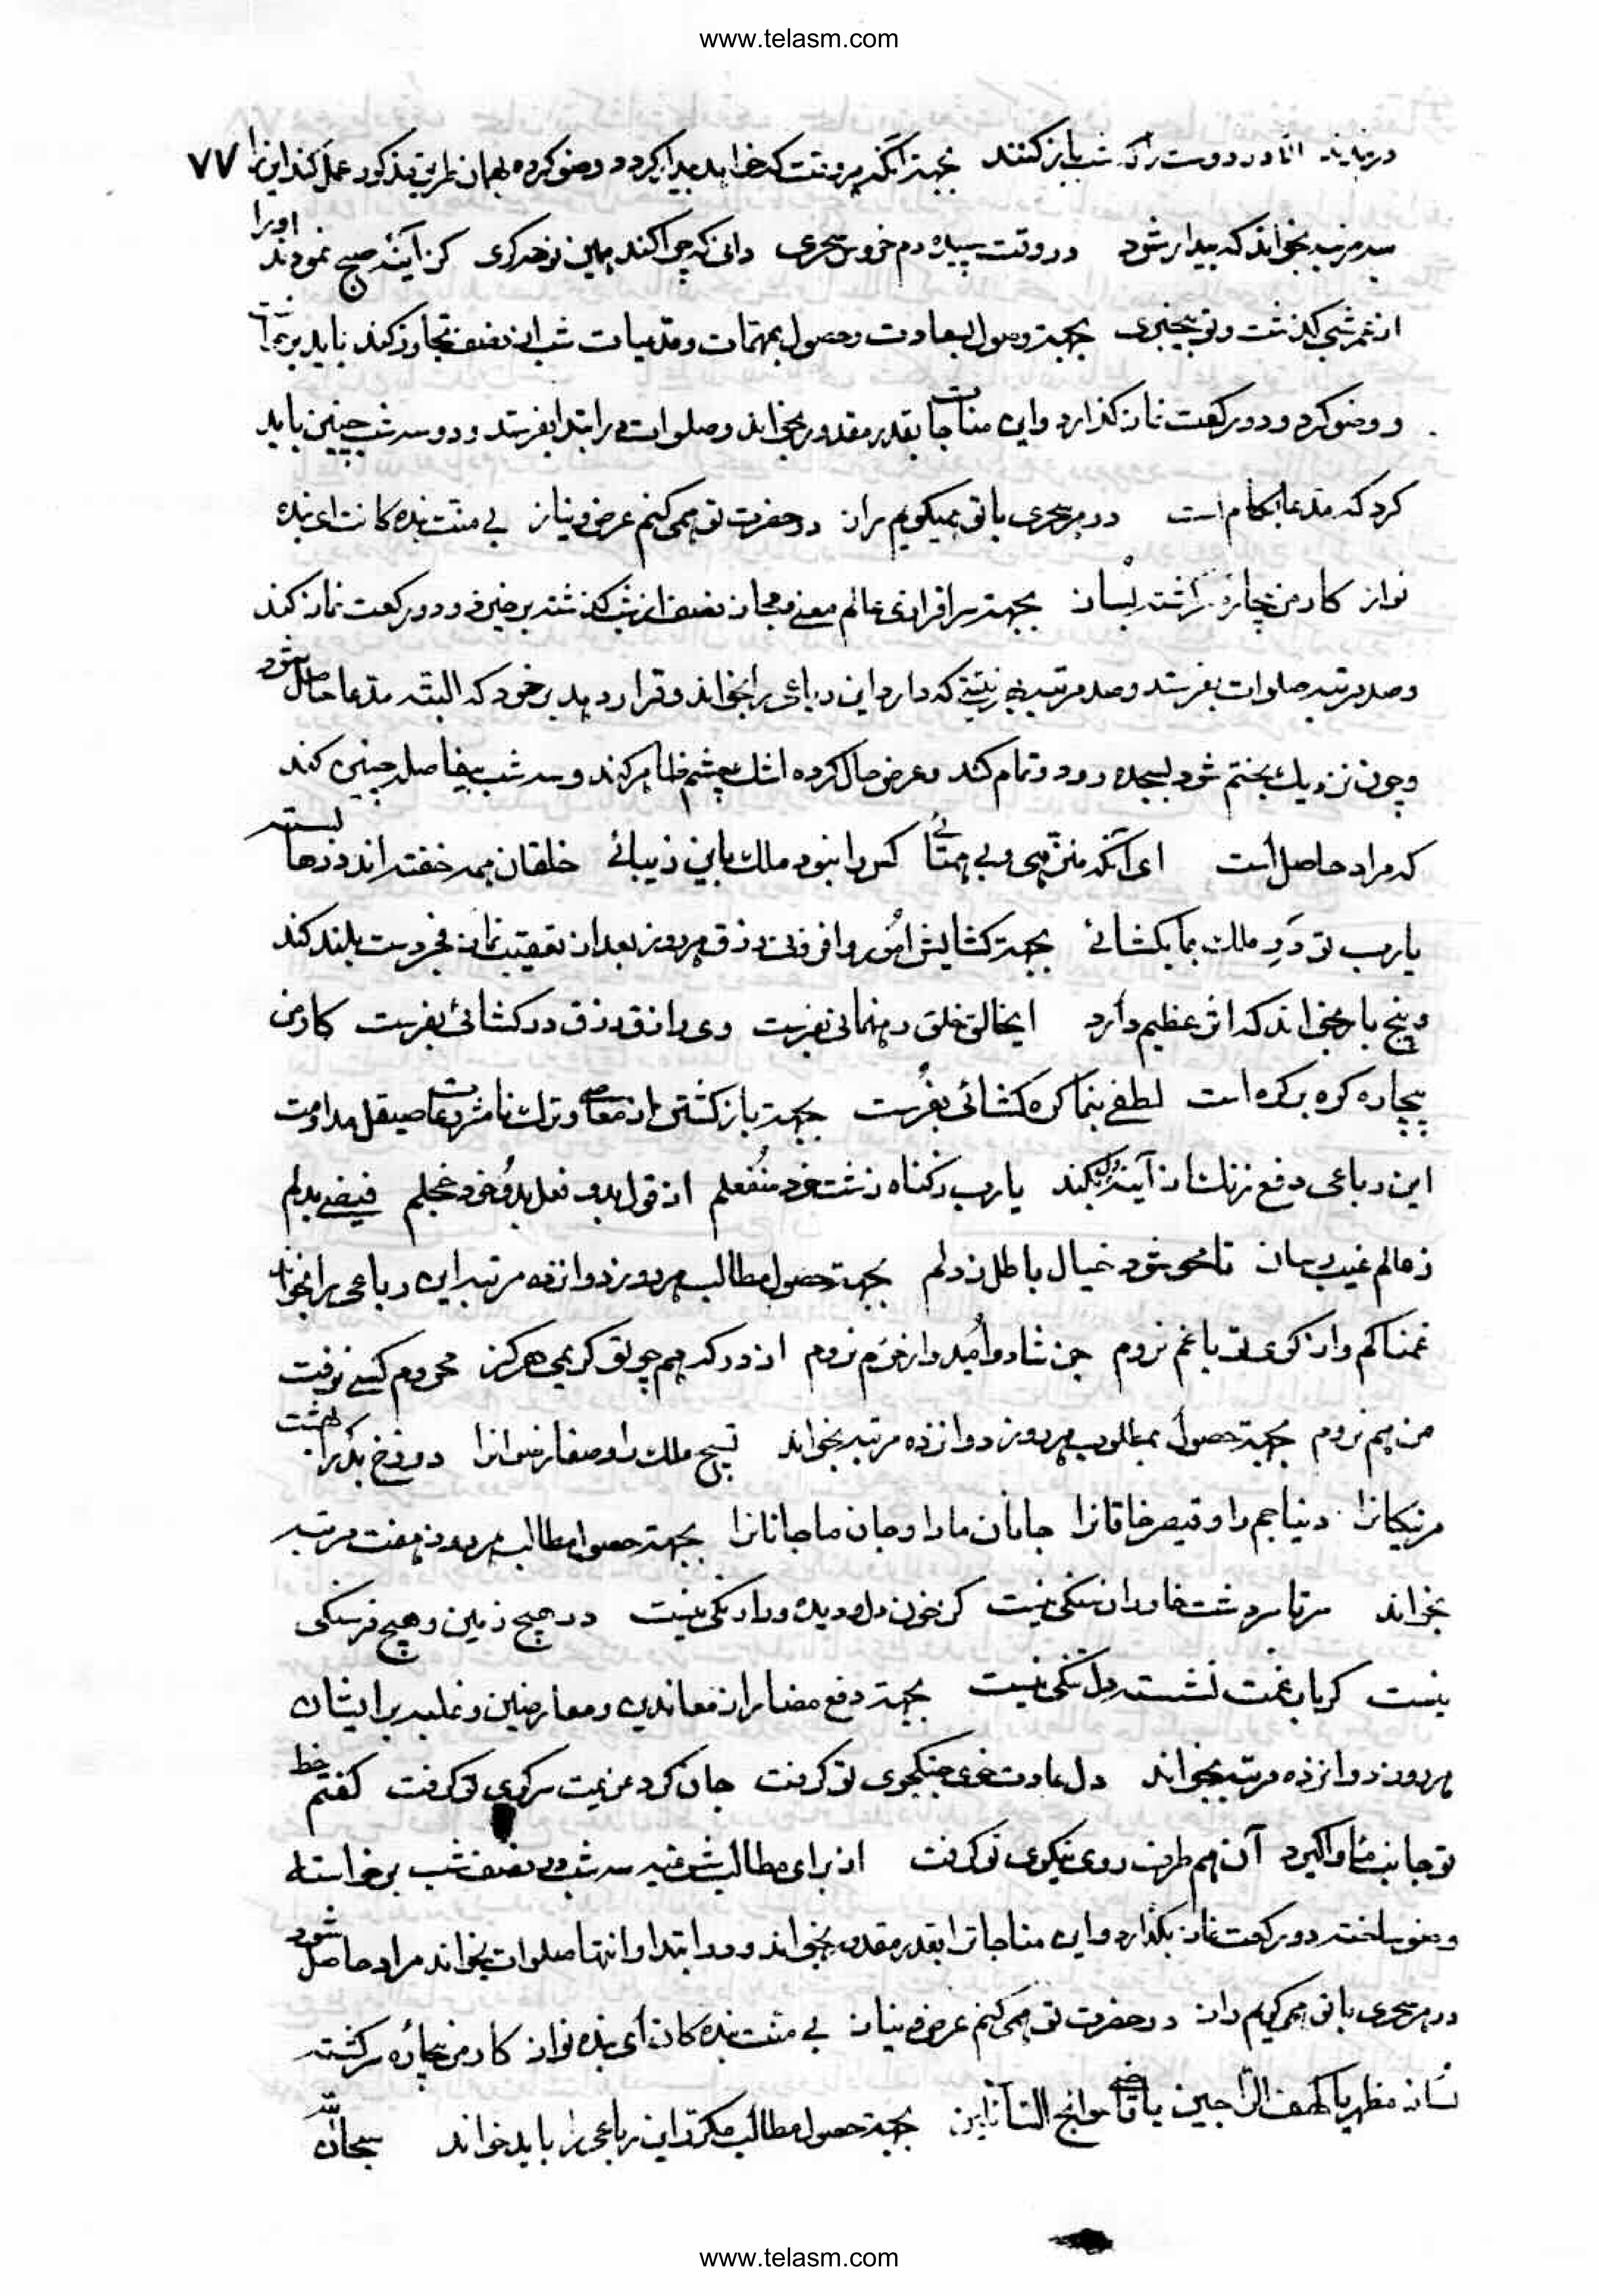 www.telasm.com
دربندند الا در دوست را که شب باز کنند جهة آنکه هر وقت که خواهد بیدار گردد وضو کرده بهمان طریق مذکور عمل کند این را ۷۷
سه مرتبه بخواند که بیدار شود در وقت سپیده دم خروس سحری دانی که چرا کند همین نوحه گری کز آینهٔ صبح نمودند اورا
از عمر شبی گذشت و تو بیخبری بجهة وصول بسعادت و حصول مهمات و مدعیات شب از نصف تجاوز کند باید برخاست
و وضو کرد و دو رکعت نماز گذارد و این مناجات بقدر مقدور بخواند و صلوات در ابتدا بفرستد و دو سه شب چنین باید
کرد که مدعا بکام است در هر سحری با تو همیگویم راز در حضرت تو همی کنم عرض و نیاز بی منت بنده کانت ای بنده
نواز کار من بیچارهٔ سرگشته بساز بجهة سرافرازی عالم معنی و مجاز نصف از شب گذشته برخیزد و دو رکعت نماز کند
و صد مرتبه صلوات بفرستد و صد مرتبه بهر نیتی که دارد این رباعی را بخواند و قرار دهد بر خود که البته مدعا حاصل شود
و چون نزدیک بختم شود بسجده رود و تمام کند و عرض حال کرده اشک بچشم ظاهر کند و سه شب بیفاصله چنین کند
که مراد حاصل است ای آنکه منزهی و بی همتائی کس را نبود ملک باین زیبائی خلقان همه خفته اند و درها بسته
یارب تو دَرِ ملک بما بگشائی بجهة گشایش امور و افزونی رزق هر روز بعد از تعقیب نماز فجر دست بلند کند
و پنج بار بخواند که اثر عظیم دارد ایخالق خلق رهنمائی بفرست وی رازق رزق در گشائی بفرست کار من
بیچاره گره بر گره است لطفی بنما گره گشائی بفرست بجهة باز گشتن از معاصی و ترک نامشروعات صیقل مداومت
این رباعی دفع زنک از آینهٔ دل بکند یارب زگناه زشت خود منفعلم از قول بد و فعل بد خود خجلم فیضی بدلم
ز عالم غیب رسان تا محو شود خیال باطل ز دلم بجهة حصول مطالب هر روز دوازده مرتبه این رباعی را بخواند
غمناکم و از کوی تو با غم نروم جز شاد و امیدوار خرم نروم از درگه همچو تو کریمی هرگز محروم کسی نرفت
من هم نروم بجهة حصول مطلوب هر روز دوازده مرتبه بخواند تسبیح ملک را و صفا رضوانرا دوزخ بد را بهشت
مر نیکانرا دنیا جم را و قیصر خاقانرا جانان ما را و جان ما جانانرا بجهة حصول مطالب هر روز هفت مرتبه
بخواند سرتاسر دشت خاوران سنگی نیست کز خون دل و دیده بر او رنگی نیست در هیچ زمین و هیچ فرسنگی
نیست کز یار غمت نشسته دلتنگی نیست بجهة دفع مضار از معاندین و معارضین و غلبه بر ایشان
هر روز دوازده مرتبه بخواند دل عادت خوی جنگجوی تو گرفت جان کرد عزیمت سر کوی تو گرفت گفتم خط
تو جانب ما را گیرد آن هم طرف روی نیکوی تو گرفت از برای مطالب مشروعه سه شب در نصف شب برخواسته
وضو ساخته دو رکعت نماز بگذارد و این مناجاترا بقدر مقدور بخواند و در ابتدا و انتها صلوات بخواند مراد حاصل شود
در هر سحری با تو همی گویم راز در حضرت تو همی کنم عرض نیاز بی منت بنده کان ای بنده نواز کار من بیچاره سرگشته
بساز مظهر یا کهف الراجین یا قاضی حوائج السائلین بجهة حصول مطالب مکرر این رباعی را باید خواند سبحان الله
www.telasm.com